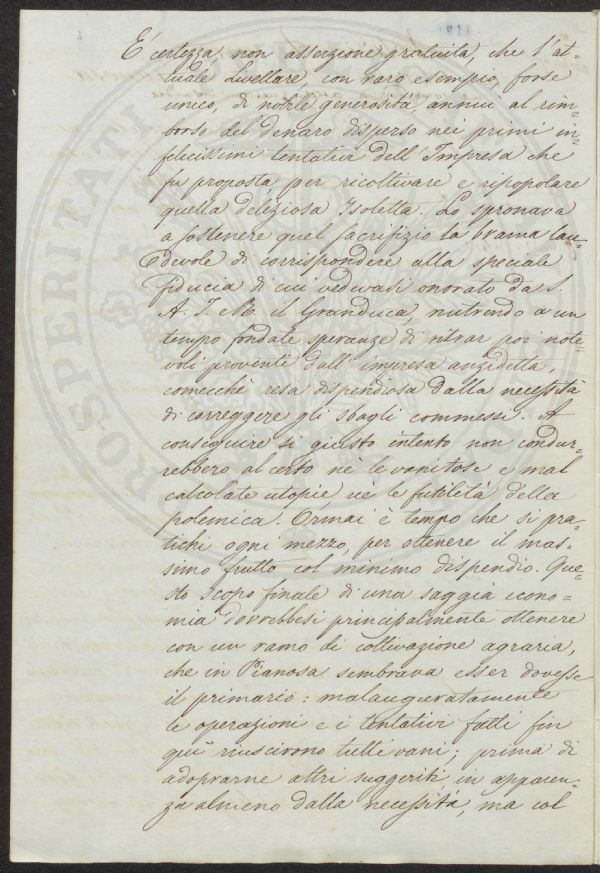 È certezza, non asserzione gratuita, che l'at-
tuale livellare con raro esempio, forse
unico, di nobile generosità, annuì al rim-
borso del denaro disperso nei primi in-
felicissimi tentativi dell'Impresa che
fu proposta per ricoltivare e ripopolare
quella deliziosa Isoletta. Lo spronava
a sostenere quel sacrifizio la brama lau-
devole di corrispondere alla speciale
fiducia di cui vedevasi onorato da S.
A. I. e R. il Granduca, nutrendo a un
tempo fondate speranze di ritrar poi note
voli proventi dall'impresa anzidetta,
comecchè resa dispendiosa dalla necessità
di correggere gli sbagli commessi. A
conseguire sì giusto intento non condur-
rebbero al certo nè le vanitose e mal
calcolate utopie, nè le futilità della
polemica. Ormai è tempo che si pra-
tichi ogni mezzo, per ottenere il mas-
simo frutto col minimo dispendio. Que-
sto scopo finale di una saggia econo=
mia dovrebbesi principalmente ottenere
con un ramo di coltivazione agraria,
che in Pianosa sembrava esser dovesse
il primario: malauguratamente
le operazioni e i tentativi fatti fin
quì riuscirono tutti vani; prima di
adoprarne altri suggeriti in apparen-
za almeno dalla necessità, ma col
PROSPERITATI